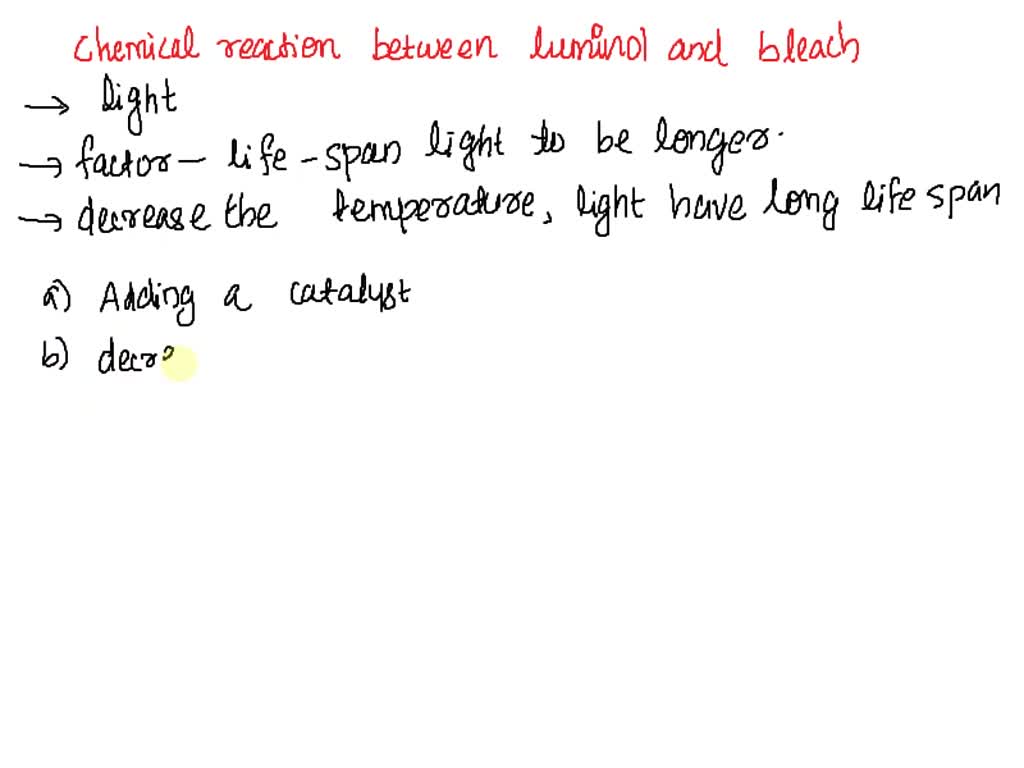 Chemical reaction between luminol and bleach
→ light
→ factor – life-span light to be longer.
→ decrease the temperature, light have long life span
a) Adding a catalyst
b) decre